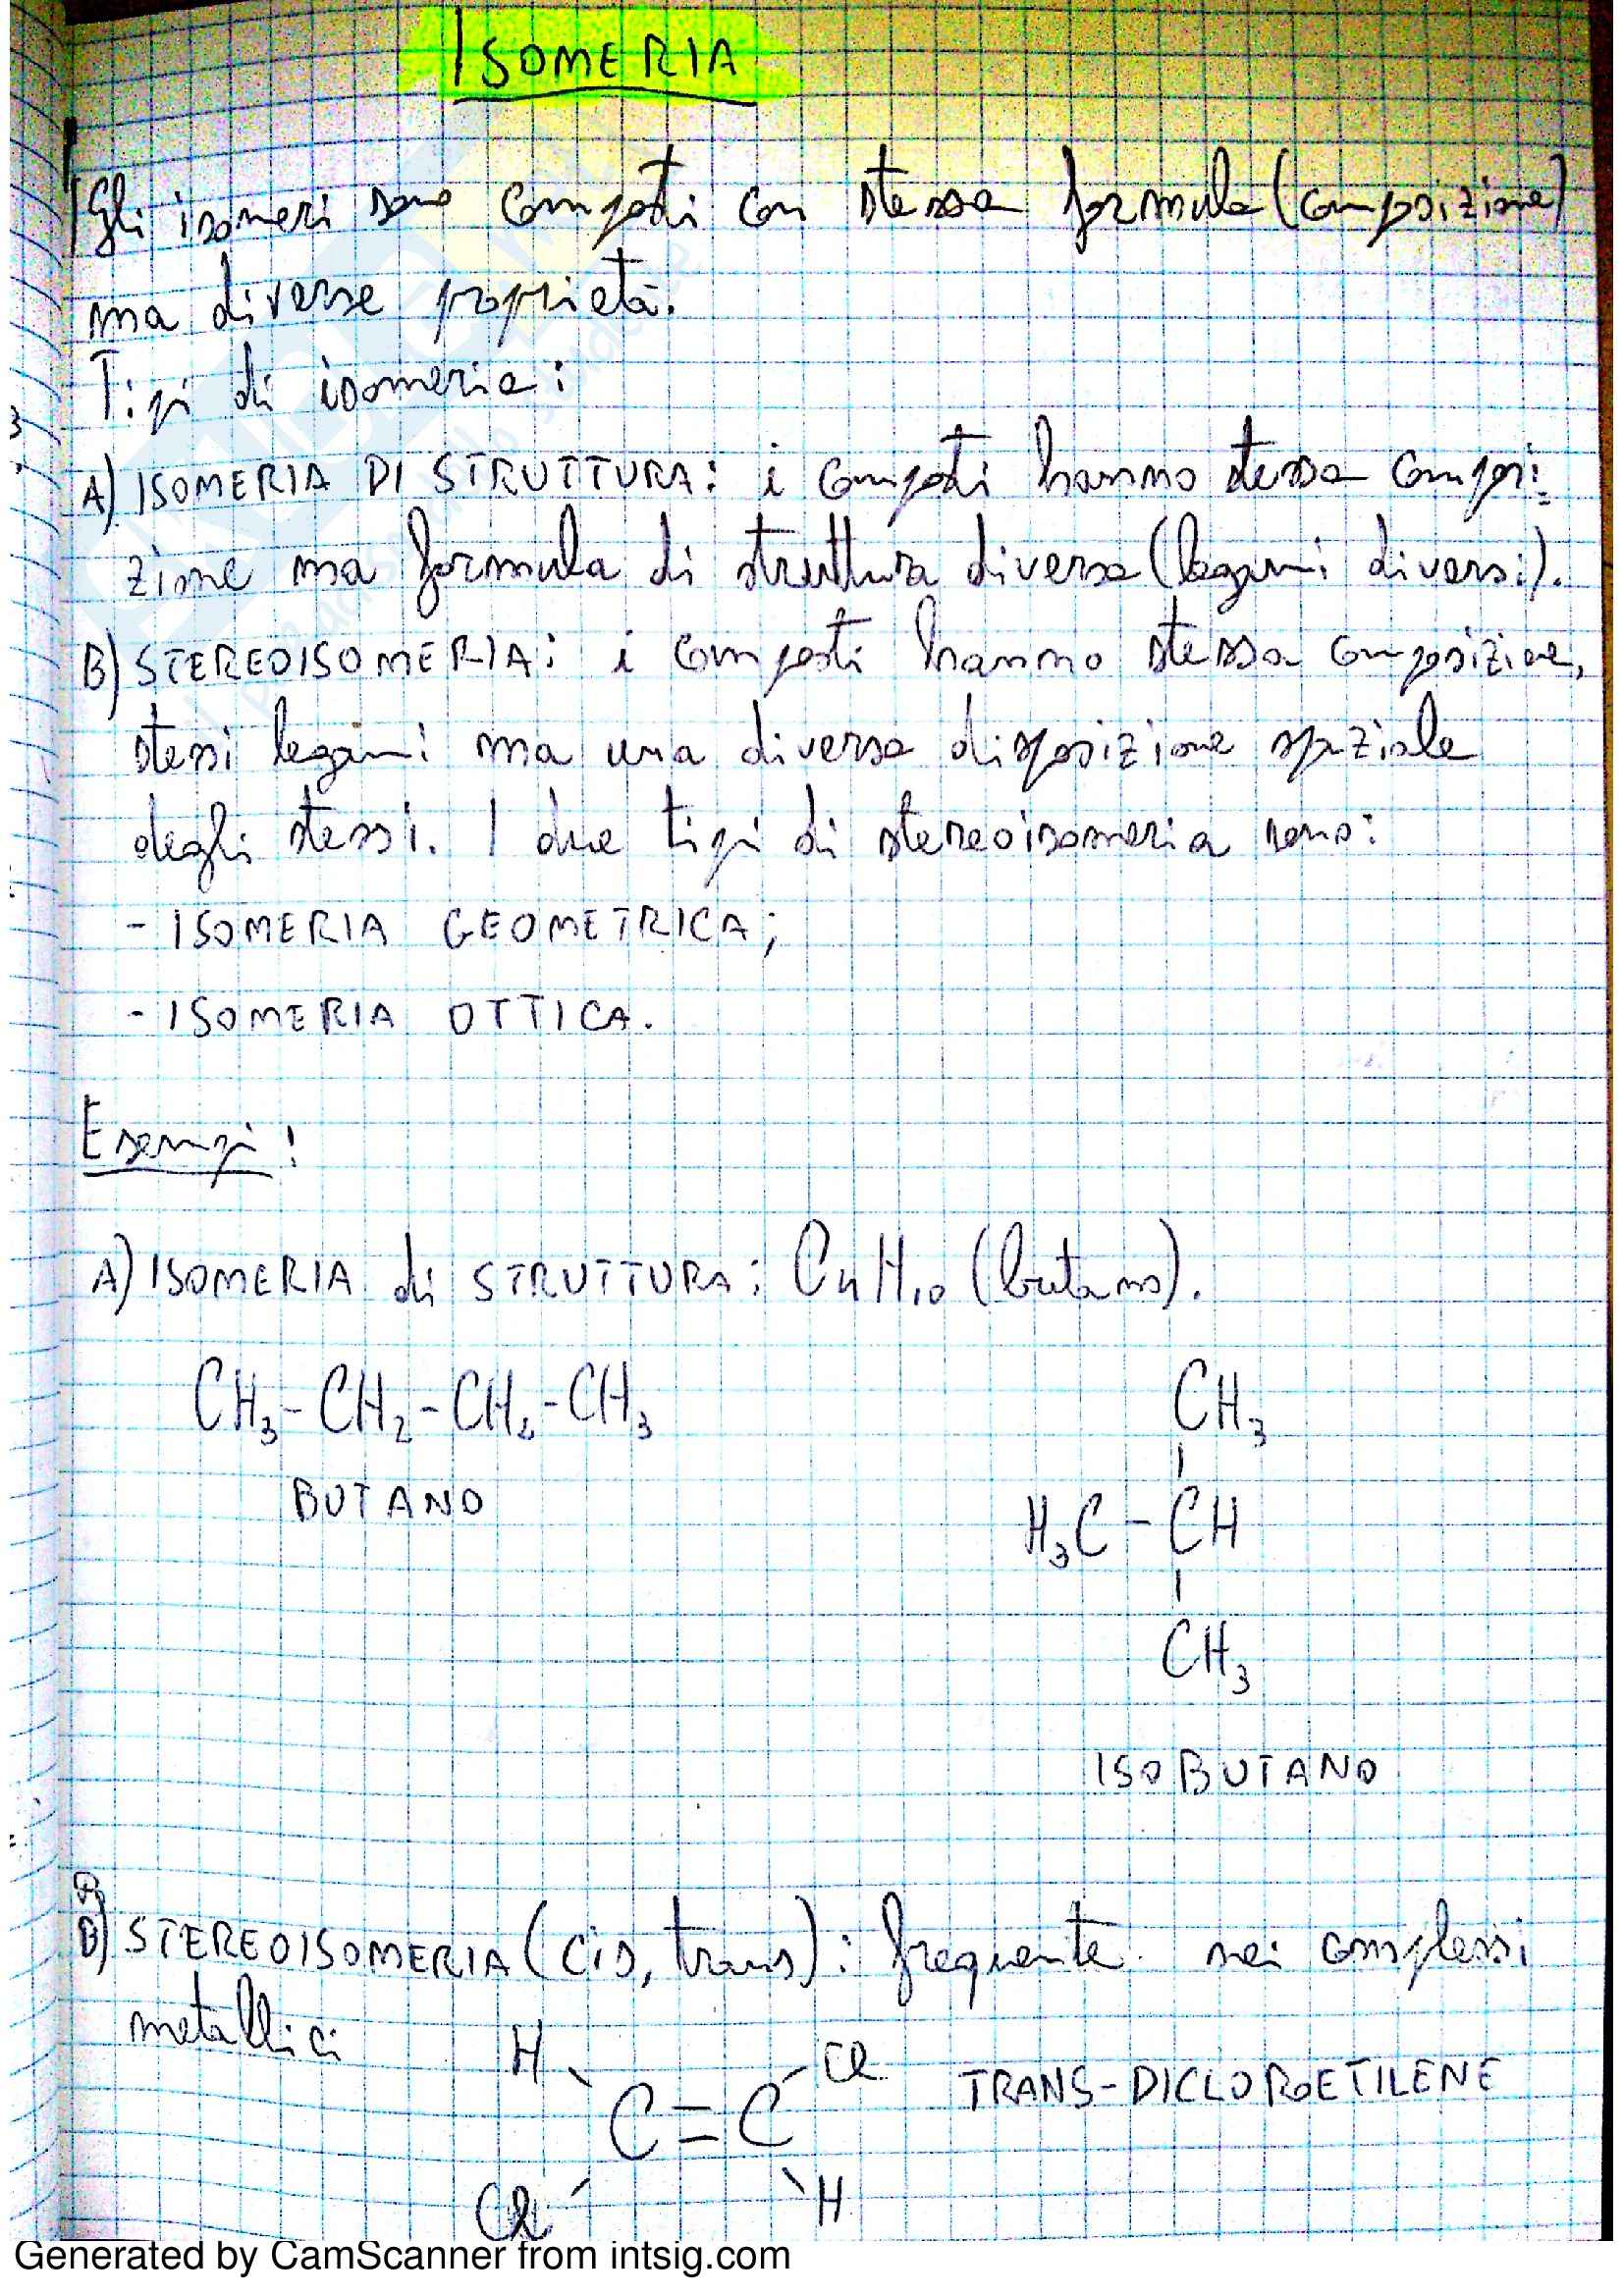 ISOMERIA
Gli isomeri sono composti con stessa formula (composizione)
ma diverse proprietà.
Tipi di isomeria:
A) ISOMERIA DI STRUTTURA: i composti hanno stessa composi=
zione ma formula di struttura diversa (legami diversi).
B) STEREOISOMERIA: i composti hanno stessa composizione,
stessi legami ma una diversa disposizione spaziale
degli stessi. I due tipi di stereoisomeria sono:
- ISOMERIA GEOMETRICA;
- ISOMERIA OTTICA.
Esempi:
A) ISOMERIA di STRUTTURA: C4H10 (butano).
CH3-CH2-CH2-CH3
BUTANO
CH3
H3C-CH
CH3
ISOBUTANO
B) STEREOISOMERIA (cis, trans): frequente nei complessi
metallici
H Cl
C=C
Cl H
TRANS-DICLOROETILENE
Generated by CamScanner from intsig.com